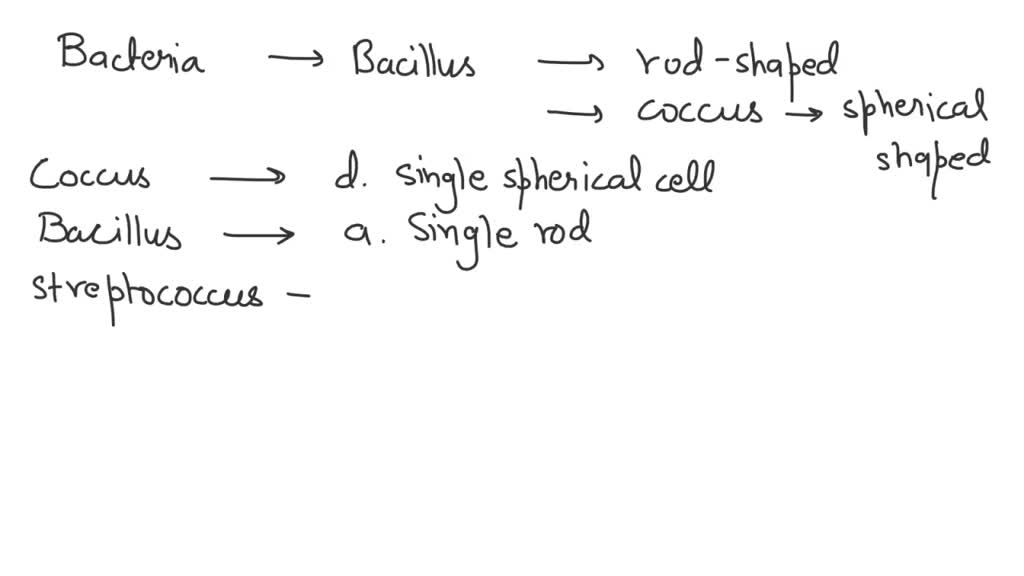 Bacteria → Bacillus → rod-shaped
→ coccus → spherical
shaped
Coccus → d. single spherical cell
Bacillus → a. Single rod
streptococcus –